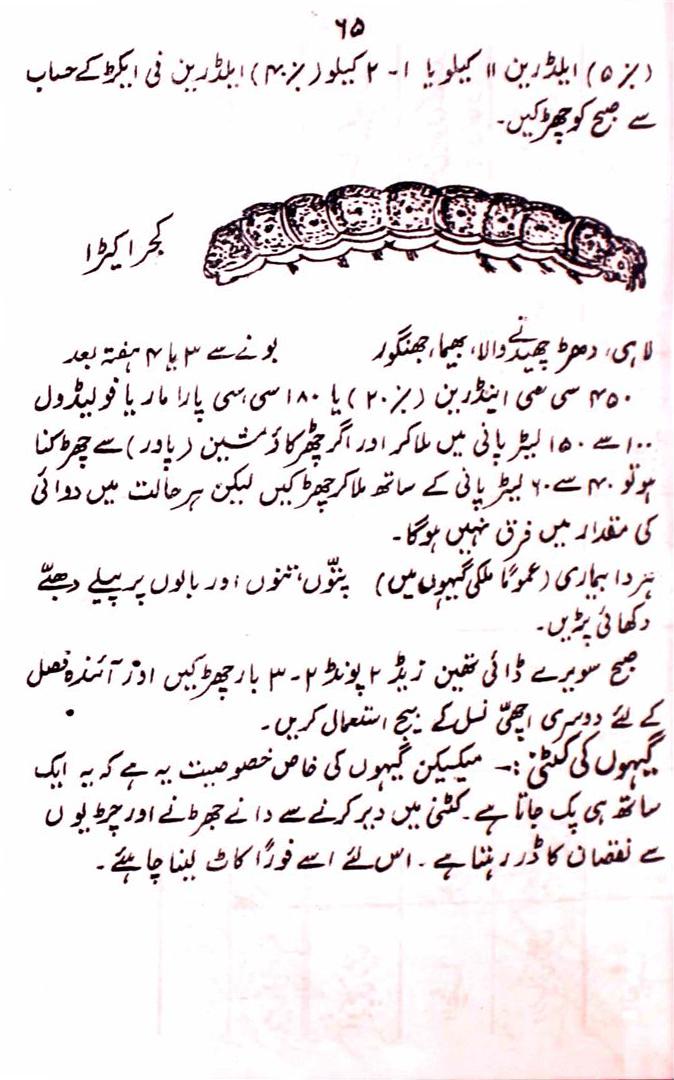 ۶۵
(۵٪) ایلڈرین ۱۱ کیلو یا ۱-۲ کیلو (۴۰٪) ایلڈرین فی ایکڑ کے حساب
سے صبح کو چھڑکیں۔
کجرا کیڑا
لاہی، دھڑ چھیدنے والا، بھیما، جھنگور بونے سے ۳ یا ۴ ہفتہ بعد
۴۵۰ سی سی اینڈرین (۲۰٪) یا ۱۸۰ سی سی پارا مار یا فولیڈول
۱۰۰ سے ۱۵۰ لیٹر پانی میں ملا کر اور اگر چھڑکاؤ مشین (پاور) سے چھڑکنا
ہو تو ۴۰ سے ۶۰ لیٹر پانی کے ساتھ ملا کر چھڑکیں لیکن ہر حالت میں دوائی
کی مقدار میں فرق نہیں ہوگا۔
ہردا بیماری (عموماً ملکی گیہوں میں) پتوں، تنوں اور بالوں پر پیلے دھبے
دکھائی پڑیں۔
صبح سویرے ڈائی تھین زیڈ ۲ پونڈ ۲-۳ بار چھڑکیں اور آئندہ فصل
کے لئے دوسری اچھی نسل کے بیج استعمال کریں۔
گیہوں کی کٹنی :۔ میکسیکن گیہوں کی خاص خصوصیت یہ ہے کہ یہ ایک
ساتھ ہی پک جاتا ہے۔ کٹنی میں دیر کرنے سے دانے جھڑنے اور چڑیوں
سے نقصان کا ڈر رہتا ہے۔ اس لئے اسے فوراً کاٹ لینا چاہئے۔